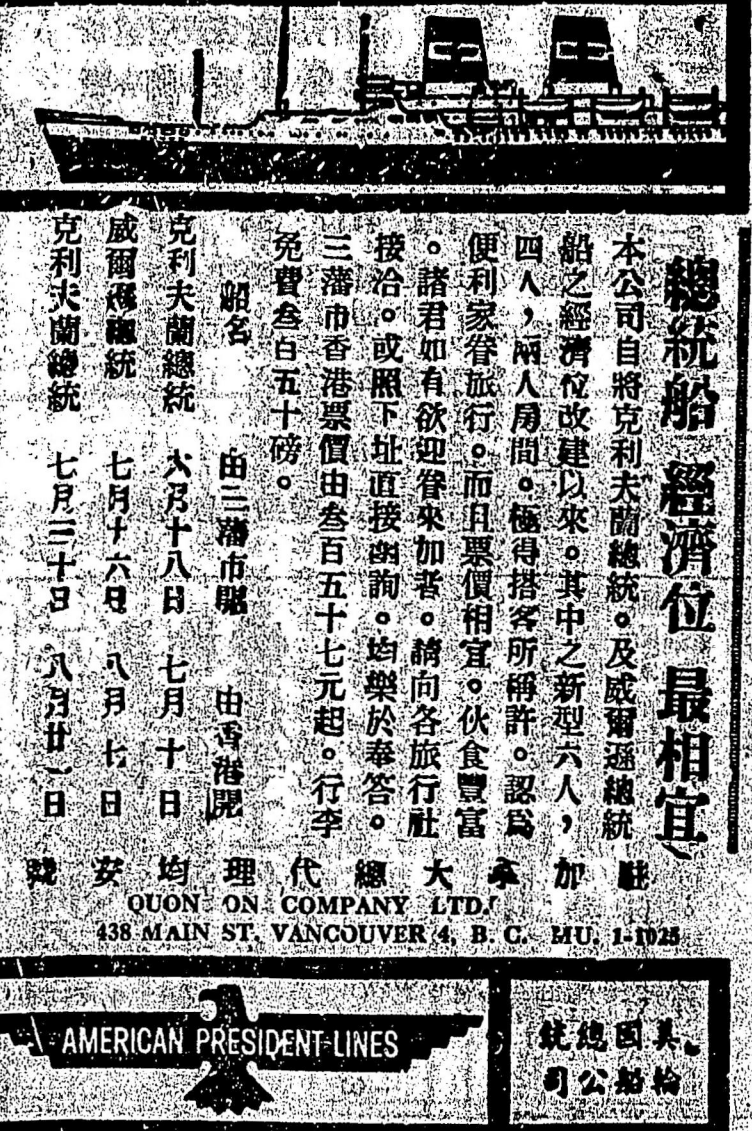 總統船 經濟位 最相宜
本公司自將克利夫蘭總統。及威爾遜總統
船之經濟位改建以來。其中之新型六人，
四人，兩人房間。極得搭客所稱許。認爲
便利家眷旅行。而且票價相宜。伙食豐富
。諸君如有欲迎眷來加者。請向各旅行社
接洽。或照下址直接函詢。均樂於奉答。
三藩市香港票價由叁百五十七元起。行李
免費叁百五十磅。
船名 由三藩市開 由香港開
克利夫蘭總統 六月十八日 七月十日
威爾遜總統 七月十六日 八月七日
克利夫蘭總統 七月三十日 八月廿一日
駐加拿大總代理均安棧
QUON ON COMPANY LTD.
438 MAIN ST. VANCOUVER 4, B. C. MU. 1-1025
AMERICAN PRESIDENT LINES
美國總統
輪船公司